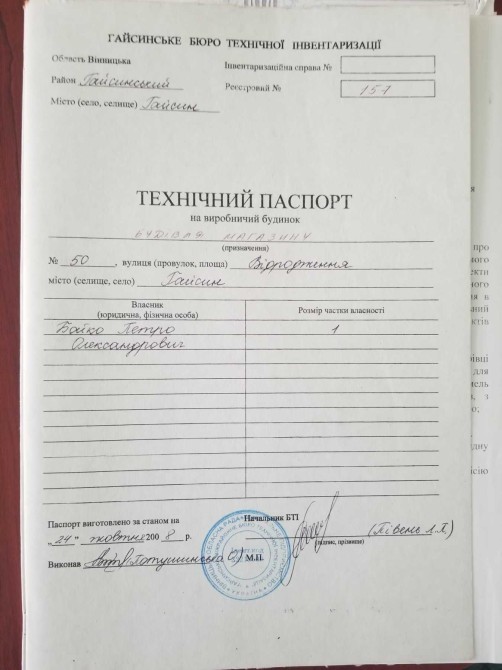 ГАЙСИНСЬКЕ БЮРО ТЕХНІЧНОЇ ІНВЕНТАРИЗАЦІЇ
Область Вінницька
Інвентаризаційна справа №
Район Гайсинський
Реєстровий № 151
Місто (село, селище) Гайсин
ТЕХНІЧНИЙ ПАСПОРТ
на виробничий будинок
МАГАЗИНУ
(призначення)
№ 50, вулиця (провулок, площа) Відродження
місто (селище, село) Гайсин
Власник
(юридична, фізична особа)
Розмір частки власності
Бойко Петро 1
Олександрович
Паспорт виготовлено за станом на
"24" жовтня 2008 р.
Начальник БТІ
(підпис, прізвище)
(Півень Л.П.)
Виконав
М.П.